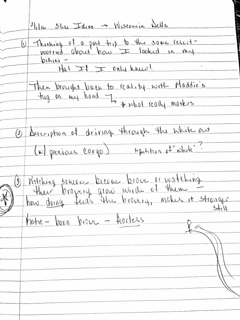 Slide Ideas - Wisconsin Dells
① Thinking of a past trip to the same resort -
worried about how I looked in my
bikini -
Ha! If I only knew!
Then brought back to reality with Maddie's
tug on my hand
* what really matters
② Description of driving through the white out
(w/ precious cargo) repetition of "white"?
③ Watching someone become brave or watching
their bravery grow inside of them -
how doing feeds the bravery, makes it stronger
still
Katie - born brave - fearless